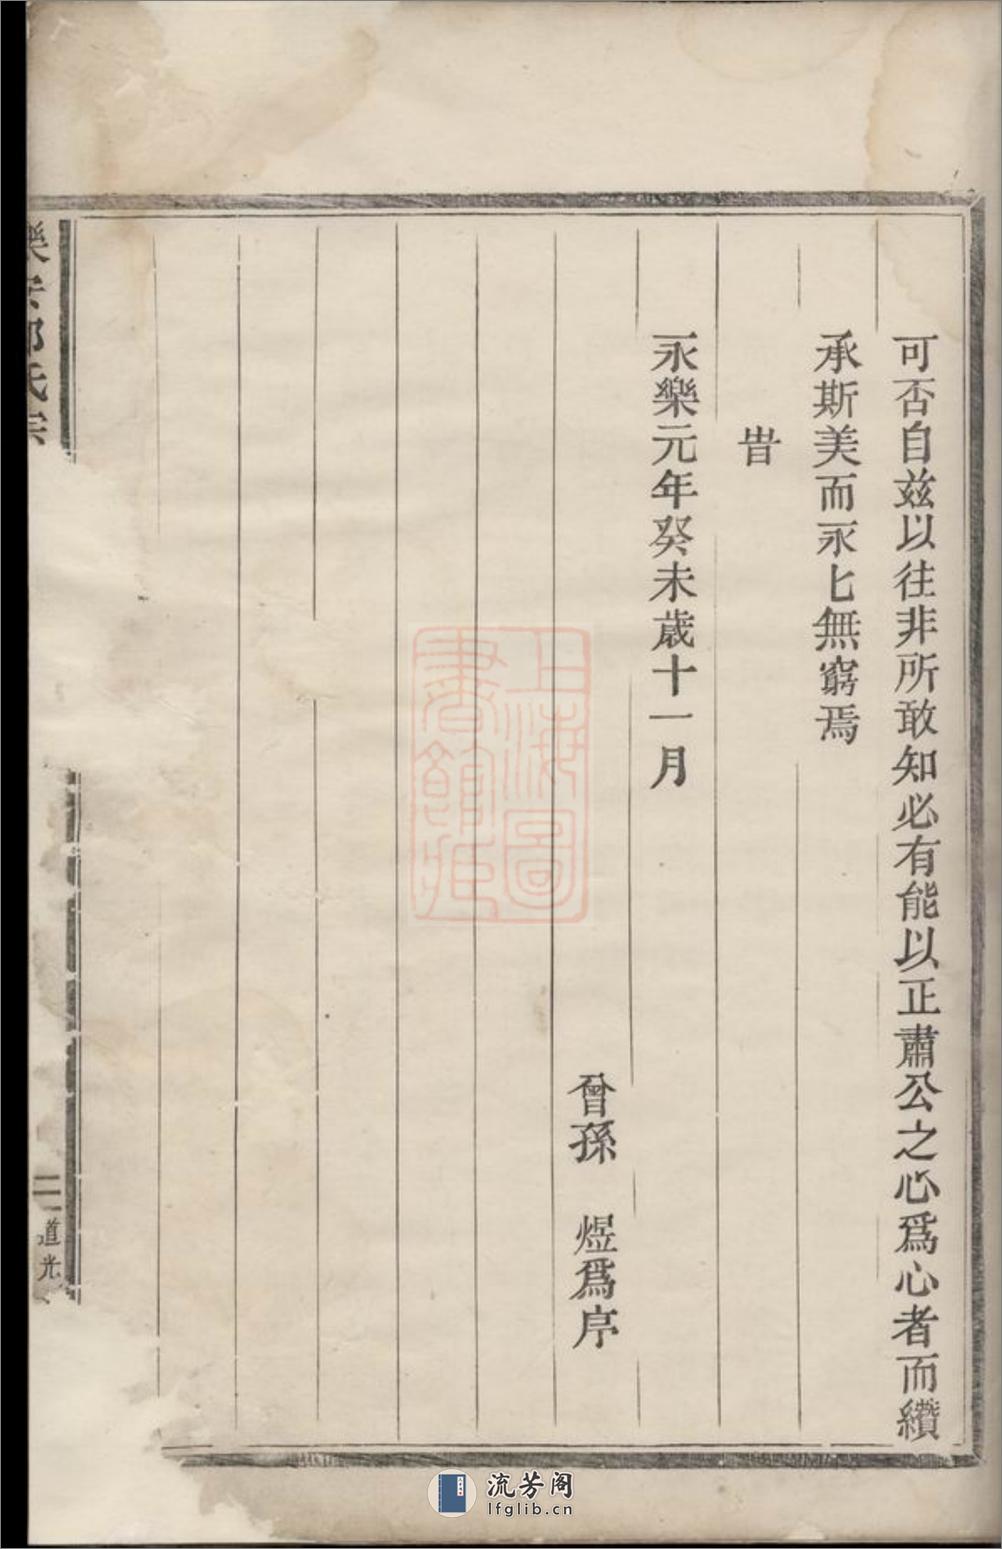 可否自兹以往非所敢知必有能以正肅公之心爲心者而纘
承斯美而永匕無窮焉
旹
永樂元年癸未歲十一月
曾孫　煜爲序
氏宗
二
道光
上海圖
書館藏
流芳阁
lfglib.cn